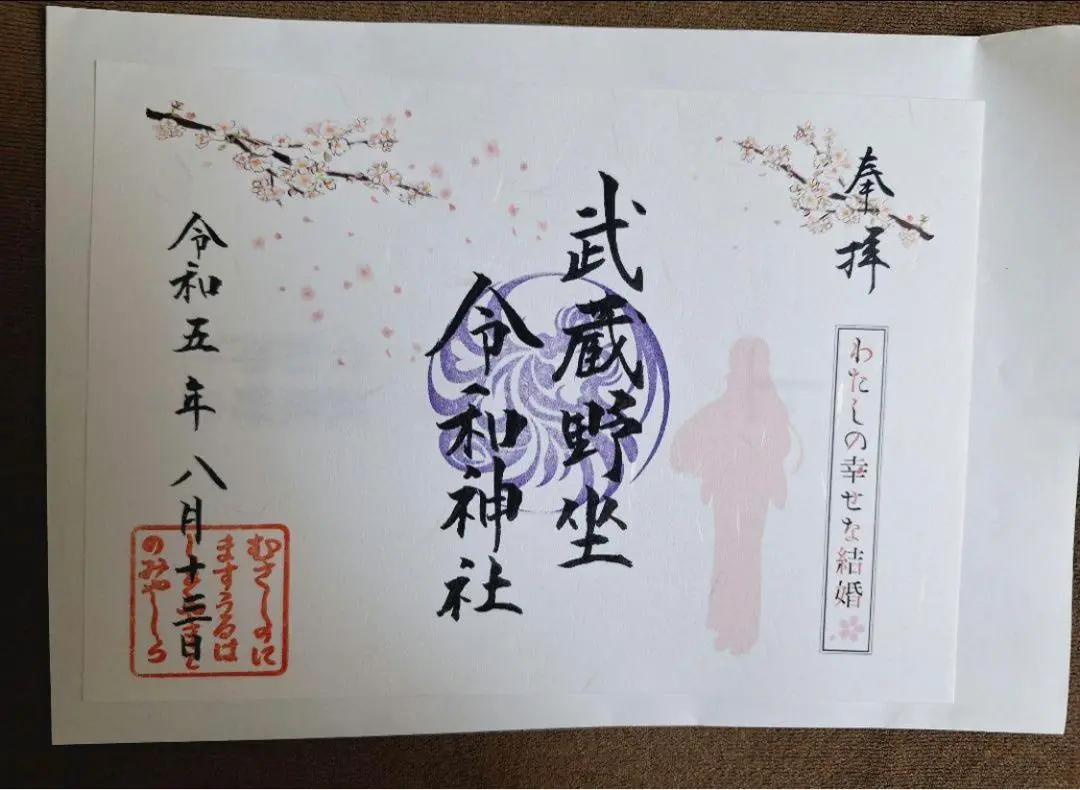 奉拝
わたしの幸せな結婚
武蔵野坐
令和神社
令和五年八月十二日
むさしのに
ますうるは
のみやしろ